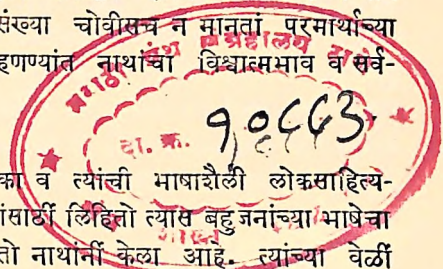 संख्या चोवीसच न मानतां परमार्थाच्या
मराठी ग्रंथ संग्रहालय
हणण्यांत नाथांचा विश्वात्मभाव व सर्व-
दा. क्र. १०८८३
का व त्यांची भाषाशैली लोकसाहित्य-
ांसाठीं लिहितो त्यास बहुजनांच्या भाषेचा
तो नाथांनीं केला आहे. त्यांच्या वेळीं